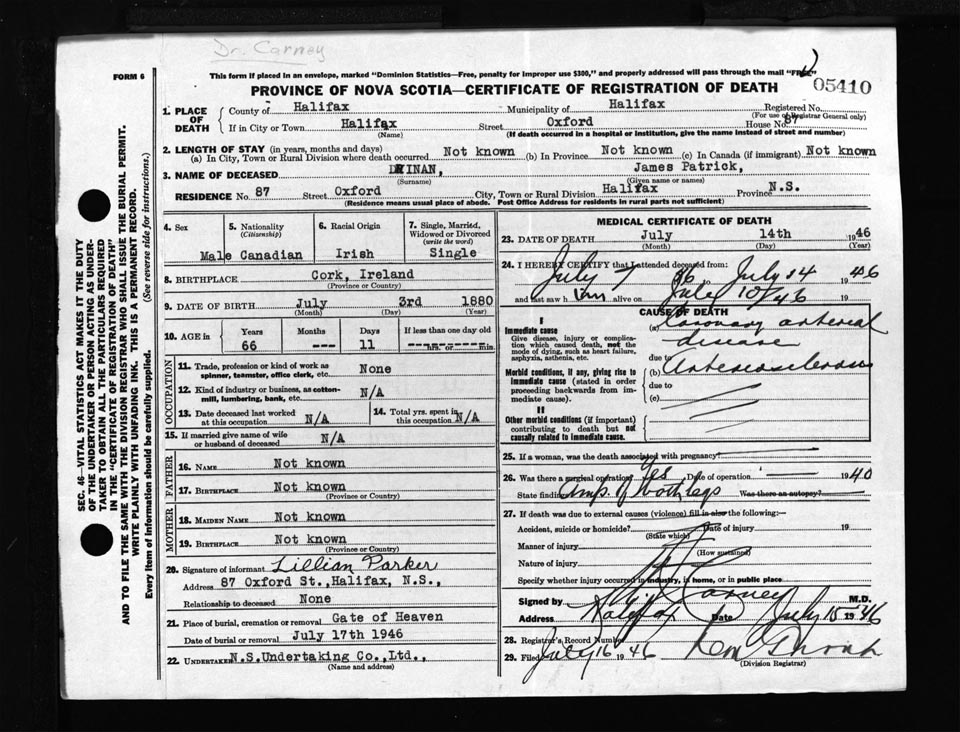 Dr. Carney
FORM 6
This form if placed in an envelope, marked "Dominion Statistics—Free, penalty for improper use $300," and properly addressed will pass through the mail "FREE"
PROVINCE OF NOVA SCOTIA—CERTIFICATE OF REGISTRATION OF DEATH
05410
SEC. 46—VITAL STATISTICS ACT MAKES IT THE DUTY
OF THE UNDERTAKER OR PERSON ACTING AS UNDER-
TAKER TO OBTAIN ALL THE PARTICULARS REQUIRED
IN THE "CERTIFICATE OF REGISTRATION OF DEATH"
AND TO FILE THE SAME WITH THE DIVISION REGISTRAR WHO SHALL ISSUE THE BURIAL PERMIT.
WRITE PLAINLY WITH UNFADING INK. THIS IS A PERMANENT RECORD.
Every item of information should be carefully supplied. (See reverse side for instructions.)
1. PLACE OF DEATH
County of Halifax Municipality of Halifax Registered No.
(For use of Registrar General only)
If in City or Town Halifax Street Oxford House No. 87
(Name) (If death occurred in a hospital or institution, give the name instead of street and number)
2. LENGTH OF STAY (in years, months and days)
(a) In City, Town or Rural Division where death occurred Not known (b) In Province Not known (c) In Canada (if immigrant) Not known
3. NAME OF DECEASED DWINAN, James Patrick,
(Surname) (Given name or names)
RESIDENCE No. 87 Street Oxford City, Town or Rural Division Halifax Province N.S.
(Residence means usual place of abode. Post Office Address for residents in rural parts not sufficient)
4. Sex 5. Nationality (Citizenship) 6. Racial Origin 7. Single, Married, Widowed or Divorced (write the word)
Male Canadian Irish Single
8. BIRTHPLACE Cork, Ireland
(Province or Country)
9. DATE OF BIRTH July 3rd 1880
(Month) (Day) (Year)
10. AGE in Years Months Days If less than one day old
66 --- 11 ---------- hrs. or min.
OCCUPATION
11. Trade, profession or kind of work as spinner, teamster, office clerk, etc. None
12. Kind of industry or business, as cotton-mill, lumbering, bank, etc. N/A
13. Date deceased last worked at this occupation N/A 14. Total yrs. spent in this occupation N/A
15. If married give name of wife or husband of deceased N/A
FATHER
16. NAME Not known
17. BIRTHPLACE Not known
(Province or Country)
MOTHER
18. MAIDEN NAME Not known
19. BIRTHPLACE Not known
(Province or Country)
20. Signature of informant Lillian Parker
Address 87 Oxford St., Halifax, N.S.,
Relationship to deceased None
21. Place of burial, cremation or removal Gate of Heaven
Date of burial or removal July 17th 1946
22. UNDERTAKER N.S. Undertaking Co., Ltd.,
(Name and address)
MEDICAL CERTIFICATE OF DEATH
23. DATE OF DEATH July 14th 1946
(Month) (Day) (Year)
24. I HEREBY CERTIFY that I attended deceased from:
July 7 46 to July 14 1946
and last saw h im alive on July 10/46 19
CAUSE OF DEATH
I
Immediate cause
Give disease, injury or complication which caused death, not the mode of dying, such as heart failure, asphyxia, asthenia, etc.
(a) Coronary arterial
disease
due to
Morbid conditions, if any, giving rise to immediate cause (stated in order proceeding backwards from immediate cause).
(b) Arteriosclerosis
due to
(c)
II
Other morbid conditions (if important) contributing to death but not causally related to immediate cause.
25. If a woman, was the death associated with pregnancy?
26. Was there a surgical operation? Yes Date of operation 1940
State finding Amp. of both legs Was there an autopsy?
27. If death was due to external causes (violence) fill in also the following:—
Accident, suicide or homicide? Date of injury 19
(State which)
Manner of injury
(How sustained)
Nature of injury
Specify whether injury occurred in industry, in home, or in public place
Signed by Carney M.D.
Address Halifax Date July 15 1946
28. Registrar's Record Number
29. Filed July 16 1946
(Division Registrar)